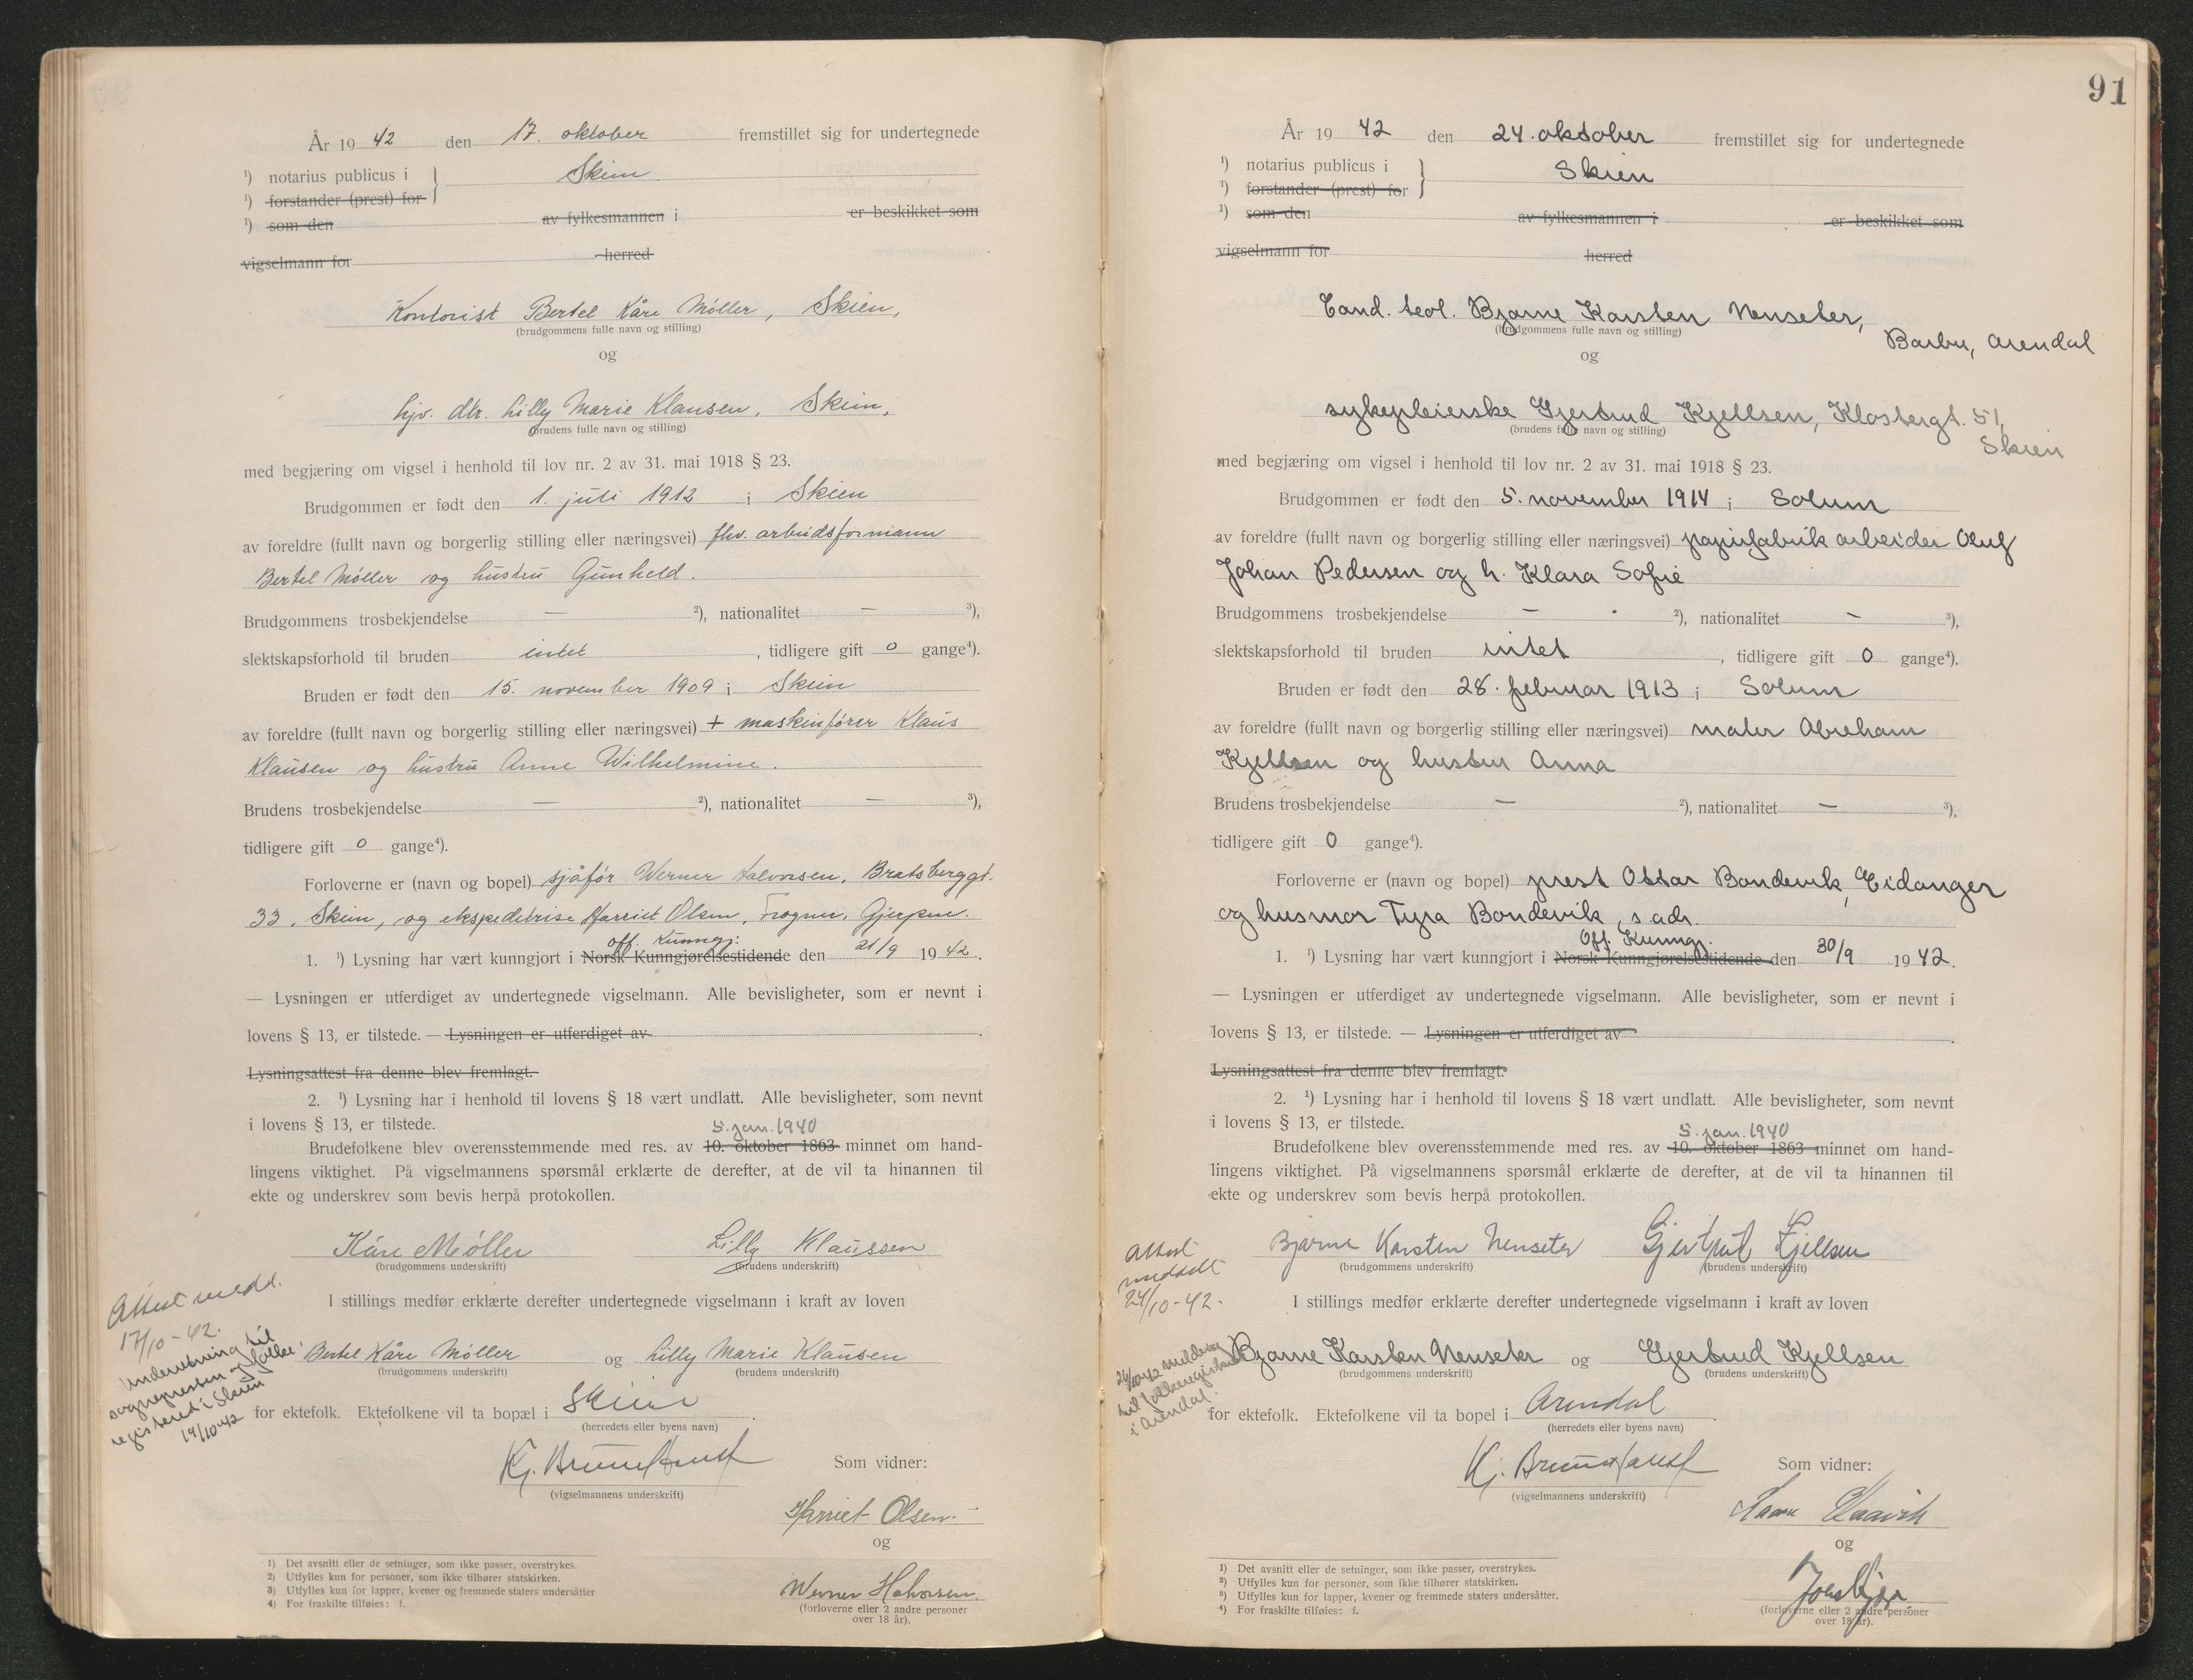 År 19 42 den 17. oktober fremstillet sig for undertegnede
¹) notarius publicus i } Skien.
¹) forstander (prest) for
¹) som den av fylkesmannen i er beskikket som
vigselmann for herred
Kontorist Bertel Kåre Møller, Skien,
(brudgommens fulle navn og stilling)
og
hjv. dtr. Lilly Marie Klausen, Skien,
(brudens fulle navn og stilling)
med begjæring om vigsel i henhold til lov nr. 2 av 31. mai 1918 § 23.
Brudgommen er født den 1. juli 1912 i Skien
av foreldre (fullt navn og borgerlig stilling eller næringsvei) fhv. arbeidsformann
Bertel Møller og hustru Gunhild.
Brudgommens trosbekjendelse — ²), nationalitet — ³),
slektskapsforhold til bruden intet, tidligere gift 0 gange⁴).
Bruden er født den 15. november 1909 i Skien
av foreldre (fullt navn og borgerlig stilling eller næringsvei) + maskinfører Klaus
Klausen og hustru Anne Wilhelmine.
Brudens trosbekjendelse — ²), nationalitet — ³),
tidligere gift 0 gange⁴).
Forloverne er (navn og bopel) sjåfør Werner Halvorsen, Bratsberggt.
33, Skien, og ekspeditrise Harriet Olsen, Frogner, Gjerpen.
off. Kunngj.
1. ¹) Lysning har vært kunngjort i Norsk Kunngjørelsestidende den 21/9 19 42.
— Lysningen er utferdiget av undertegnede vigselmann. Alle bevisligheter, som er nevnt i
lovens § 13, er tilstede. — Lysningen er utferdiget av
Lysningsattest fra denne blev fremlagt.
2. ¹) Lysning har i henhold til lovens § 18 vært undlatt. Alle bevisligheter, som nevnt
i lovens § 13, er tilstede.
5. jan. 1940
Brudefolkene blev overensstemmende med res. av 10. oktober 1863 minnet om hand-
lingens viktighet. På vigselmannens spørsmål erklærte de derefter, at de vil ta hinannen til
ekte og underskrev som bevis herpå protokollen.
Kåre Møller Lilly Klaussen
(brudgommens underskrift) (brudens underskrift)
Attest medd.
17/10-42.
I stillings medfør erklærte derefter undertegnede vigselmann i kraft av loven
Underretning til
sognepresten og folke-
registeret i Skien
19/10 42
Bertel Kåre Møller og Lilly Marie Klausen
(brudgommens underskrift) (brudens underskrift)
for ektefolk. Ektefolkene vil ta bopæl i Skien.
(herredets eller byens navn)
Som vidner:
(vigselmannens underskrift)
Harriet Olsen.
og
Werner Halvorsen.
(forloverne eller 2 andre personer
over 18 år).
1) Det avsnitt eller de setninger, som ikke passer, overstrykes.
2) Utfylles kun for personer, som ikke tilhører statskirken.
3) Utfylles kun for lapper, kvener og fremmede staters undersåtter
4) For fraskilte tilføies: f.
91
År 19 42 den 24. oktober fremstillet sig for undertegnede
¹) notarius publicus i } Skien
¹) forstander (prest) for
¹) som den av fylkesmannen i er beskikket som
vigselmann for herred
Cand. teol. Bjarne Karsten Nenseter,
Barbu, Arendal
(brudgommens fulle navn og stilling)
og
sykepleierske Gjertrud Kjellsen, Klostergt. 51,
Skien
(brudens fulle navn og stilling)
med begjæring om vigsel i henhold til lov nr. 2 av 31. mai 1918 § 23.
Brudgommen er født den 5. november 1914 i Solum
av foreldre (fullt navn og borgerlig stilling eller næringsvei) papirfabrikarbeider Oluf
Johan Pedersen og h. Klara Sofie
Brudgommens trosbekjendelse — ²), nationalitet — ³),
slektskapsforhold til bruden intet, tidligere gift 0 gange⁴).
Bruden er født den 28. februar 1913 i Solum
av foreldre (fullt navn og borgerlig stilling eller næringsvei) maler Abraham
Kjellsen og hustru Anna
Brudens trosbekjendelse — ²), nationalitet — ³),
tidligere gift 0 gange⁴).
Forloverne er (navn og bopel) prest Ottar Bondevik, Eidanger
og husmor Tyra Bondevik, s. adr.
Off. Kunngj.
1. ¹) Lysning har vært kunngjort i Norsk Kunngjørelsestidende den 30/9 19 42.
— Lysningen er utferdiget av undertegnede vigselmann. Alle bevisligheter, som er nevnt i
lovens § 13, er tilstede. — Lysningen er utferdiget av
Lysningsattest fra denne blev fremlagt.
2. ¹) Lysning har i henhold til lovens § 18 vært undlatt. Alle bevisligheter, som nevnt
i lovens § 13, er tilstede.
5. jan. 1940
Brudefolkene blev overensstemmende med res. av 10. oktober 1863 minnet om hand-
lingens viktighet. På vigselmannens spørsmål erklærte de derefter, at de vil ta hinannen til
ekte og underskrev som bevis herpå protokollen.
Attest
meddelt
24/10-42.
Bjarne Karsten Nenseter Gjertrud Kjellsen
(brudgommens underskrift) (brudens underskrift)
I stillings medfør erklærte derefter undertegnede vigselmann i kraft av loven
26/10 42 melding
til folkeregisteret
i Arendal.
Bjarne Karsten Nenseter og Gjertrud Kjellsen
(brudgommens underskrift) (brudens underskrift)
for ektefolk. Ektefolkene vil ta bopel i Arendal.
(herredets eller byens navn)
Som vidner:
(vigselmannens underskrift)
og
(forloverne eller 2 andre personer
over 18 år).
¹) Det avsnitt eller de setninger, som ikke passer, overstrykes.
²) Utfylles kun for personer, som ikke tilhører statskirken.
³) Utfylles kun for lapper, kvener og fremmede staters undersåtter.
⁴) For fraskilte tilføies: f.